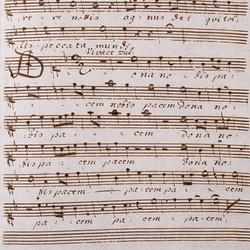 re re nobis agnus dei qui tol
lis peccata mundi
Vivace
D ona no bis pa
cem nobis pacem dona no
bis pa cem dona no
bis pacem pacem dona no
bis pacem pacem pa
pa cem pa cem pacem.